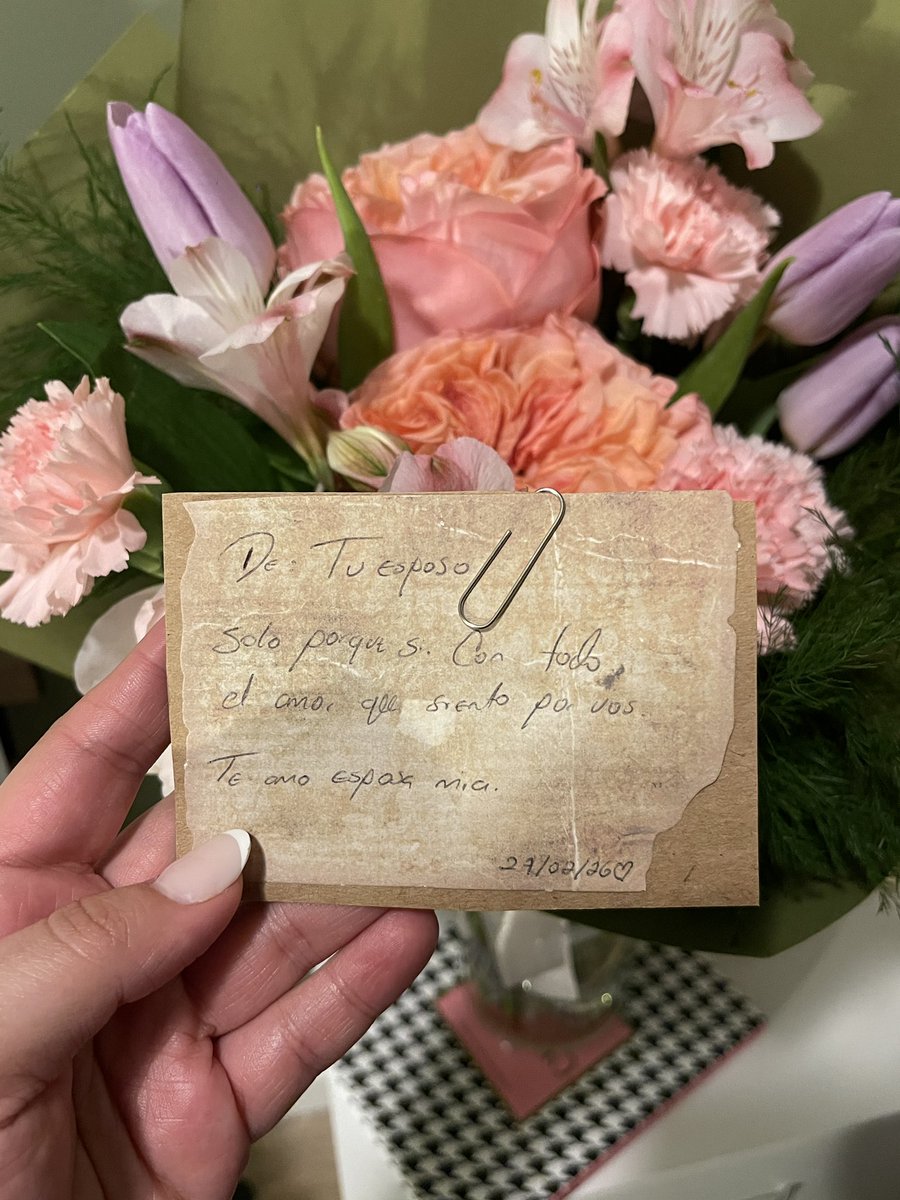 De: Tu esposo
Solo porque si. Con todo
el amor que siento por vos.
Te amo esposa mia.
27/02/26♡